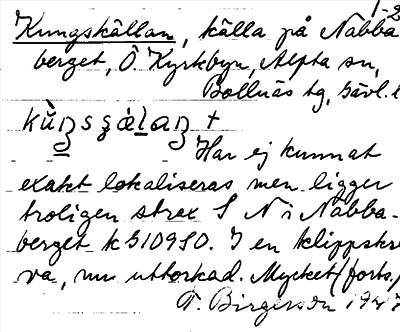 1-2
Kungskällan, källa på Nabba
berget, Ö. Kyrkbyn, Alfta sn,
Bollnäs tg, Gävl. l
Har ej kunnat
exakt lokaliseras men ligger
troligen strax S N i Nabba-
berget k 510950. I en klippskre
va, nu uttorkad. Mycket (forts.)
T. Birgersson 1947